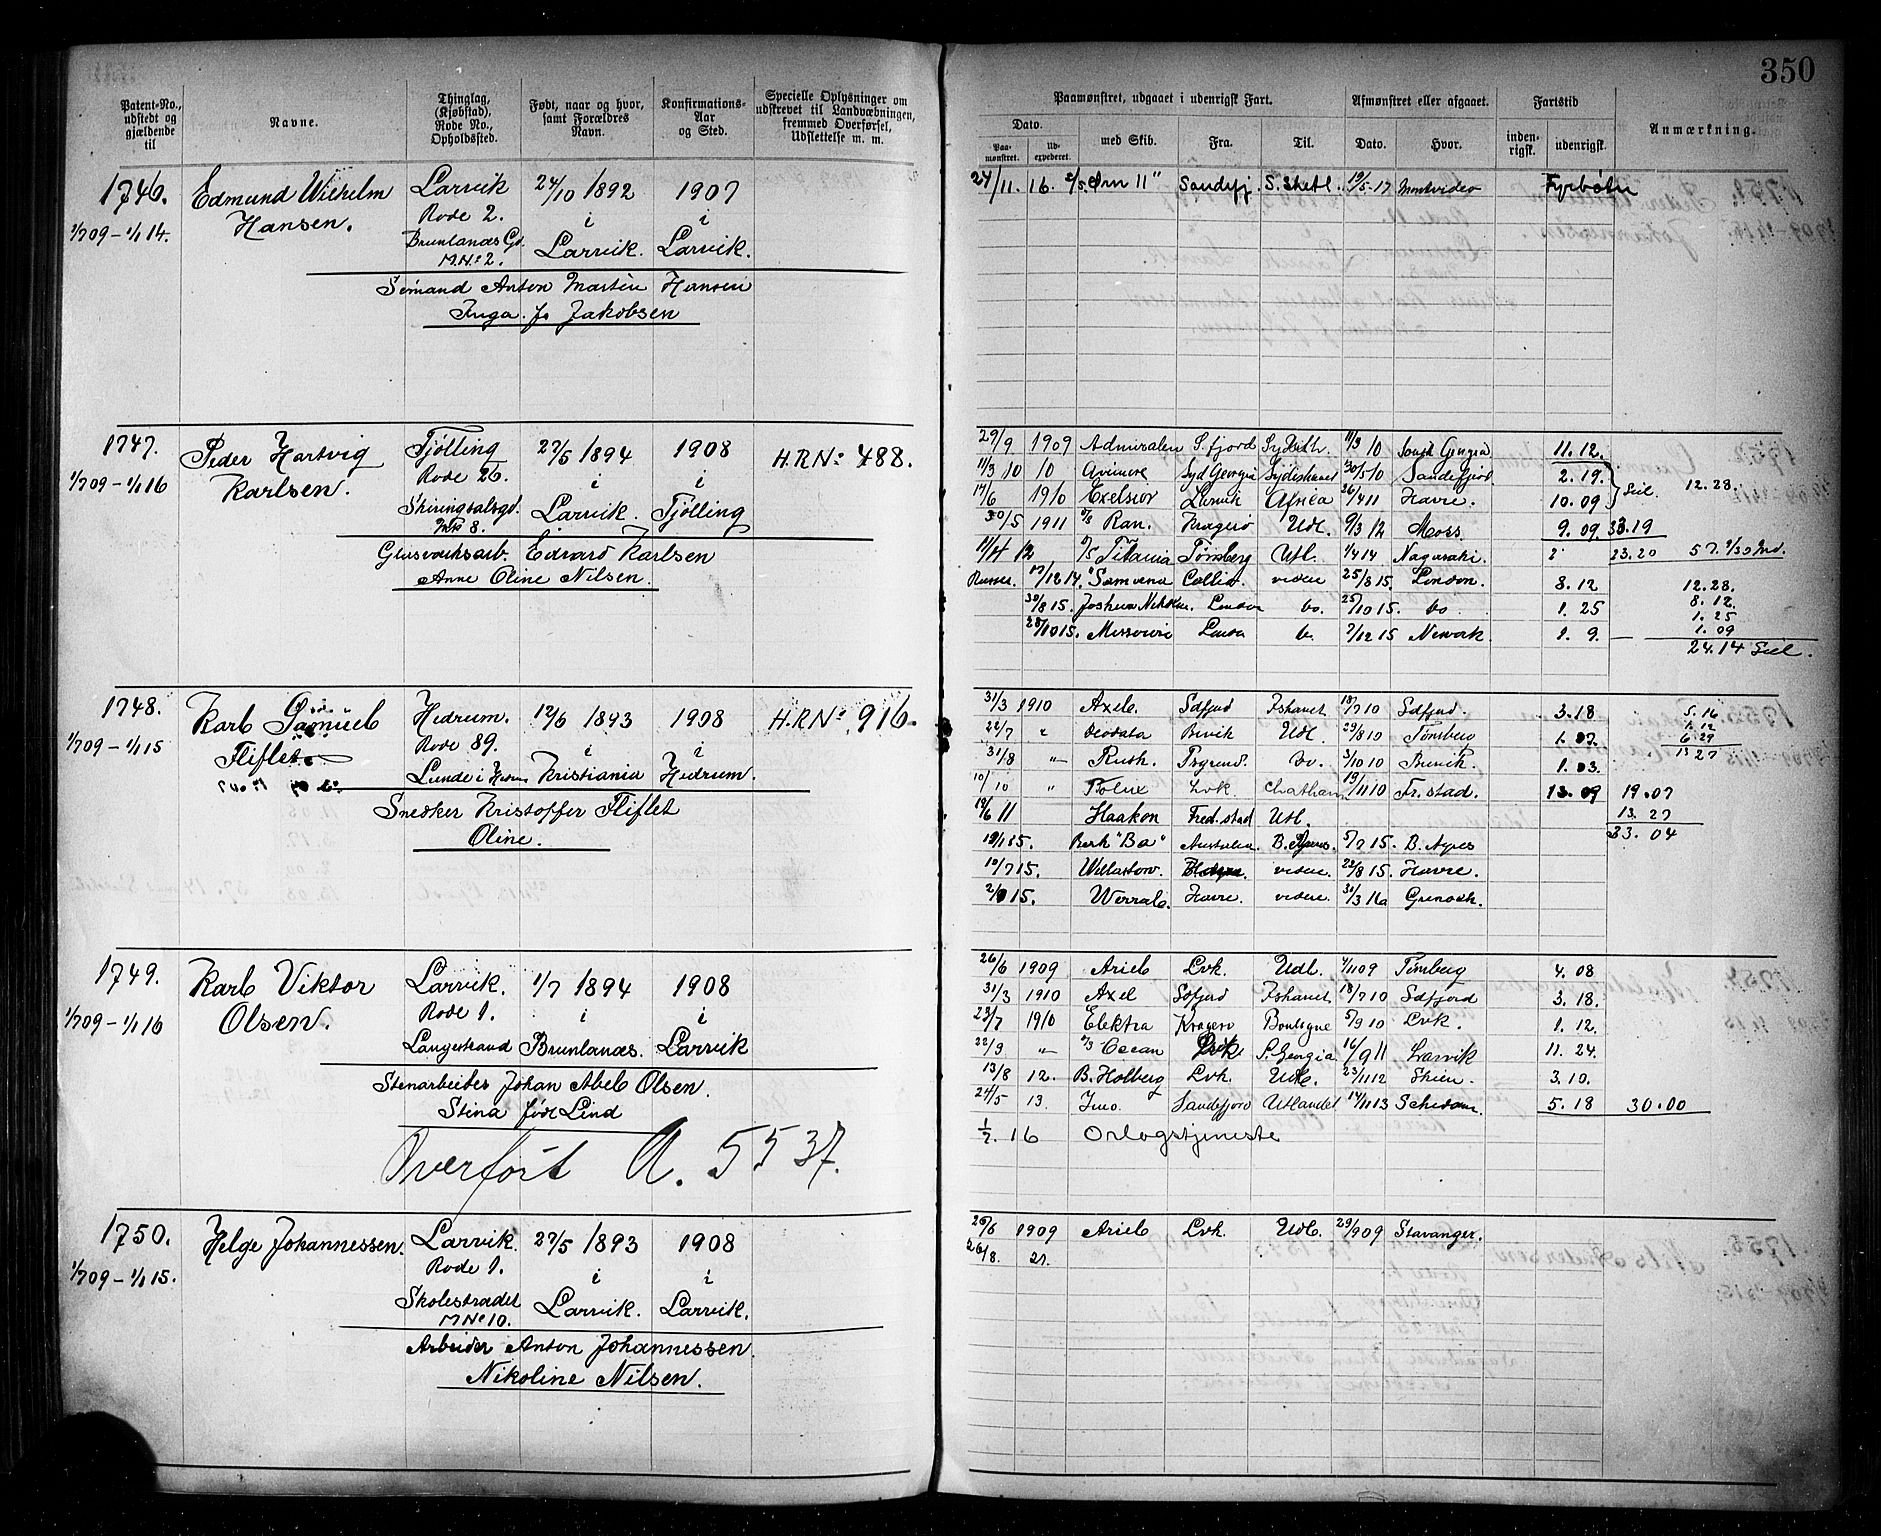 350
Patent-No., udstedt og gjældende til
Navne.
Thinglag, (Kjøbstad), Rode No., Opholdssted.
Født, naar og hvor, samt Forældres Navn.
Konfirmations-Aar og Sted.
Specielle Oplysninger om udskrevet til Landvæbningen, fremmed Overførsel, Udslettelse m. m.
Paamønstret, udgaaet i udenrigsk Fart.
Dato.
Paa-mønstret.
Ud-expederet.
med Skib.
Fra.
Til.
Afmønstret eller afgaaet.
Dato.
Hvor.
Fartstid
inden-rigsk.
udenrigsk.
Anmærkning.
1746. Edmund Wilhelm Larvik 24/10 1892 1907
Hansen. Rode 2. i i
1/7 09 – 1/1 14. Brunlanæs Gd. Larvik. Larvik.
M.No 2.
Sømand Anton Martin Hansen
Inga f. Jakobsen
24/11. 16. Ørn II" Sandefj. S. Shetl. 19/5-17 Montvideo Fyrbøter
1747. Peder Hartvig Tjølling 27/5 1894 1908 H.R No 488.
1/7 09 – 1/1 16 Karlsen. Rode 26. i i
Skiringsalsgd. Larvik. Tjølling
No 8.
Glasværksarb. Edvard Karlsen
Anne Oline Nilsen.
29/9 1909 Admiralen S. fjord 11/3 10 Syd Georgia 11. 12.
11/3 10 10 Syd Georgia Sydishavet 30/5 10 Sandefjord 2. 19. Seil. 12.28.
14/6 1910 Exelsior Larvik Afrika 26/4 11 Havre. 10. 09
30/5 1911 Ran. Kragerø Udl. 9/3 12 Moss 9. 09 33.19
11/4 12 Titania Tønsberg Utl. 1/4 14 Nagasaki 23.20
17/12 14. Samoena Callao. videre 25/8 15. London. 8. 12 12.28.
30/8 15. London do. 25/10 15. do 1. 25 8.12
28/10 15. Missouri do. 7/12 15 Newark. 1. 9. 1.25
1.09
24.14 Seil.
1748. Karl Samuel Hedrum. 12/6 1893 1908 H.R No 916.
1/7 09 – 1/1 15 Fliflet. Rode 89. i i
Lunde i Kristiania Hedrum.
Snedker Kristoffer Fliflet
Oline.
31/3 1910 Axel. Sdfjord Ishavet 18/7 10 Sdfjord. 3. 18 5.16
22/7 " Deodata Brevik Udl. 29/8 10 Tønsberg 1. 07. 1.12
6.29
31/8 " Rush. Do. 3/10 10 Brevik. 1. 03. 13 27
10/10 " Polux Lvk Chatham 19/11 10 Fr.stad. 13. 09 19.07
19/6 11 Haakon Fred.stad Utl. 13.27
33.04
19/1 15. Bark "Ba" Australia. B. Ayres. 5/7 15. B. Ayres
10/7 15. videre. 22/8 15. Havre.
15. Werral. Havre. videre. 31/3 16 Grenock.
1749. Karl Viktor Larvik. 1/7 1894 1908
1/7 09 – 1/1 16 Olsen. Rode 1. i i
Langestrand Brunlanæs. Larvik
Stenarbeider Johan Abel Olsen.
Stina født Lind
Overført A. 5537.
26/6 1909 Ariel Lvk. Udl. 7/11 09 Tønsberg 4. 08
31/3 1910 Axel Sdfjord Ishavet 18/7 10 Sdfjord 3. 18.
23/7 1910 Elektra Kragerø Boulogne 5/9 10 Lvk. 1. 12.
22/9 " Ocean Lvik S. Georgia 16/9 11 Larvik 11. 24.
13/8 12. B. Holberg Lvk. Udl. 23/11 12 Skien. 3. 10.
24/5 13. Imo. Sandefjord Utlandet 14/11 13 Schidam. 5. 18 30.00
1/2. 16 Orlogstjeneste
1750. Helge Johannessen. Larvik. 27/5 1893 1908
1/7 09 – 1/1 15. Rode 1. i i
Skolestrædet Larvik. Larvik.
MNo 10.
Arbeider Anton Johannessen.
Nikoline Nilsen.
26/6 1909 Ariel Lvk. Udl. 29/9 09 Stavanger.
26/8. 21.